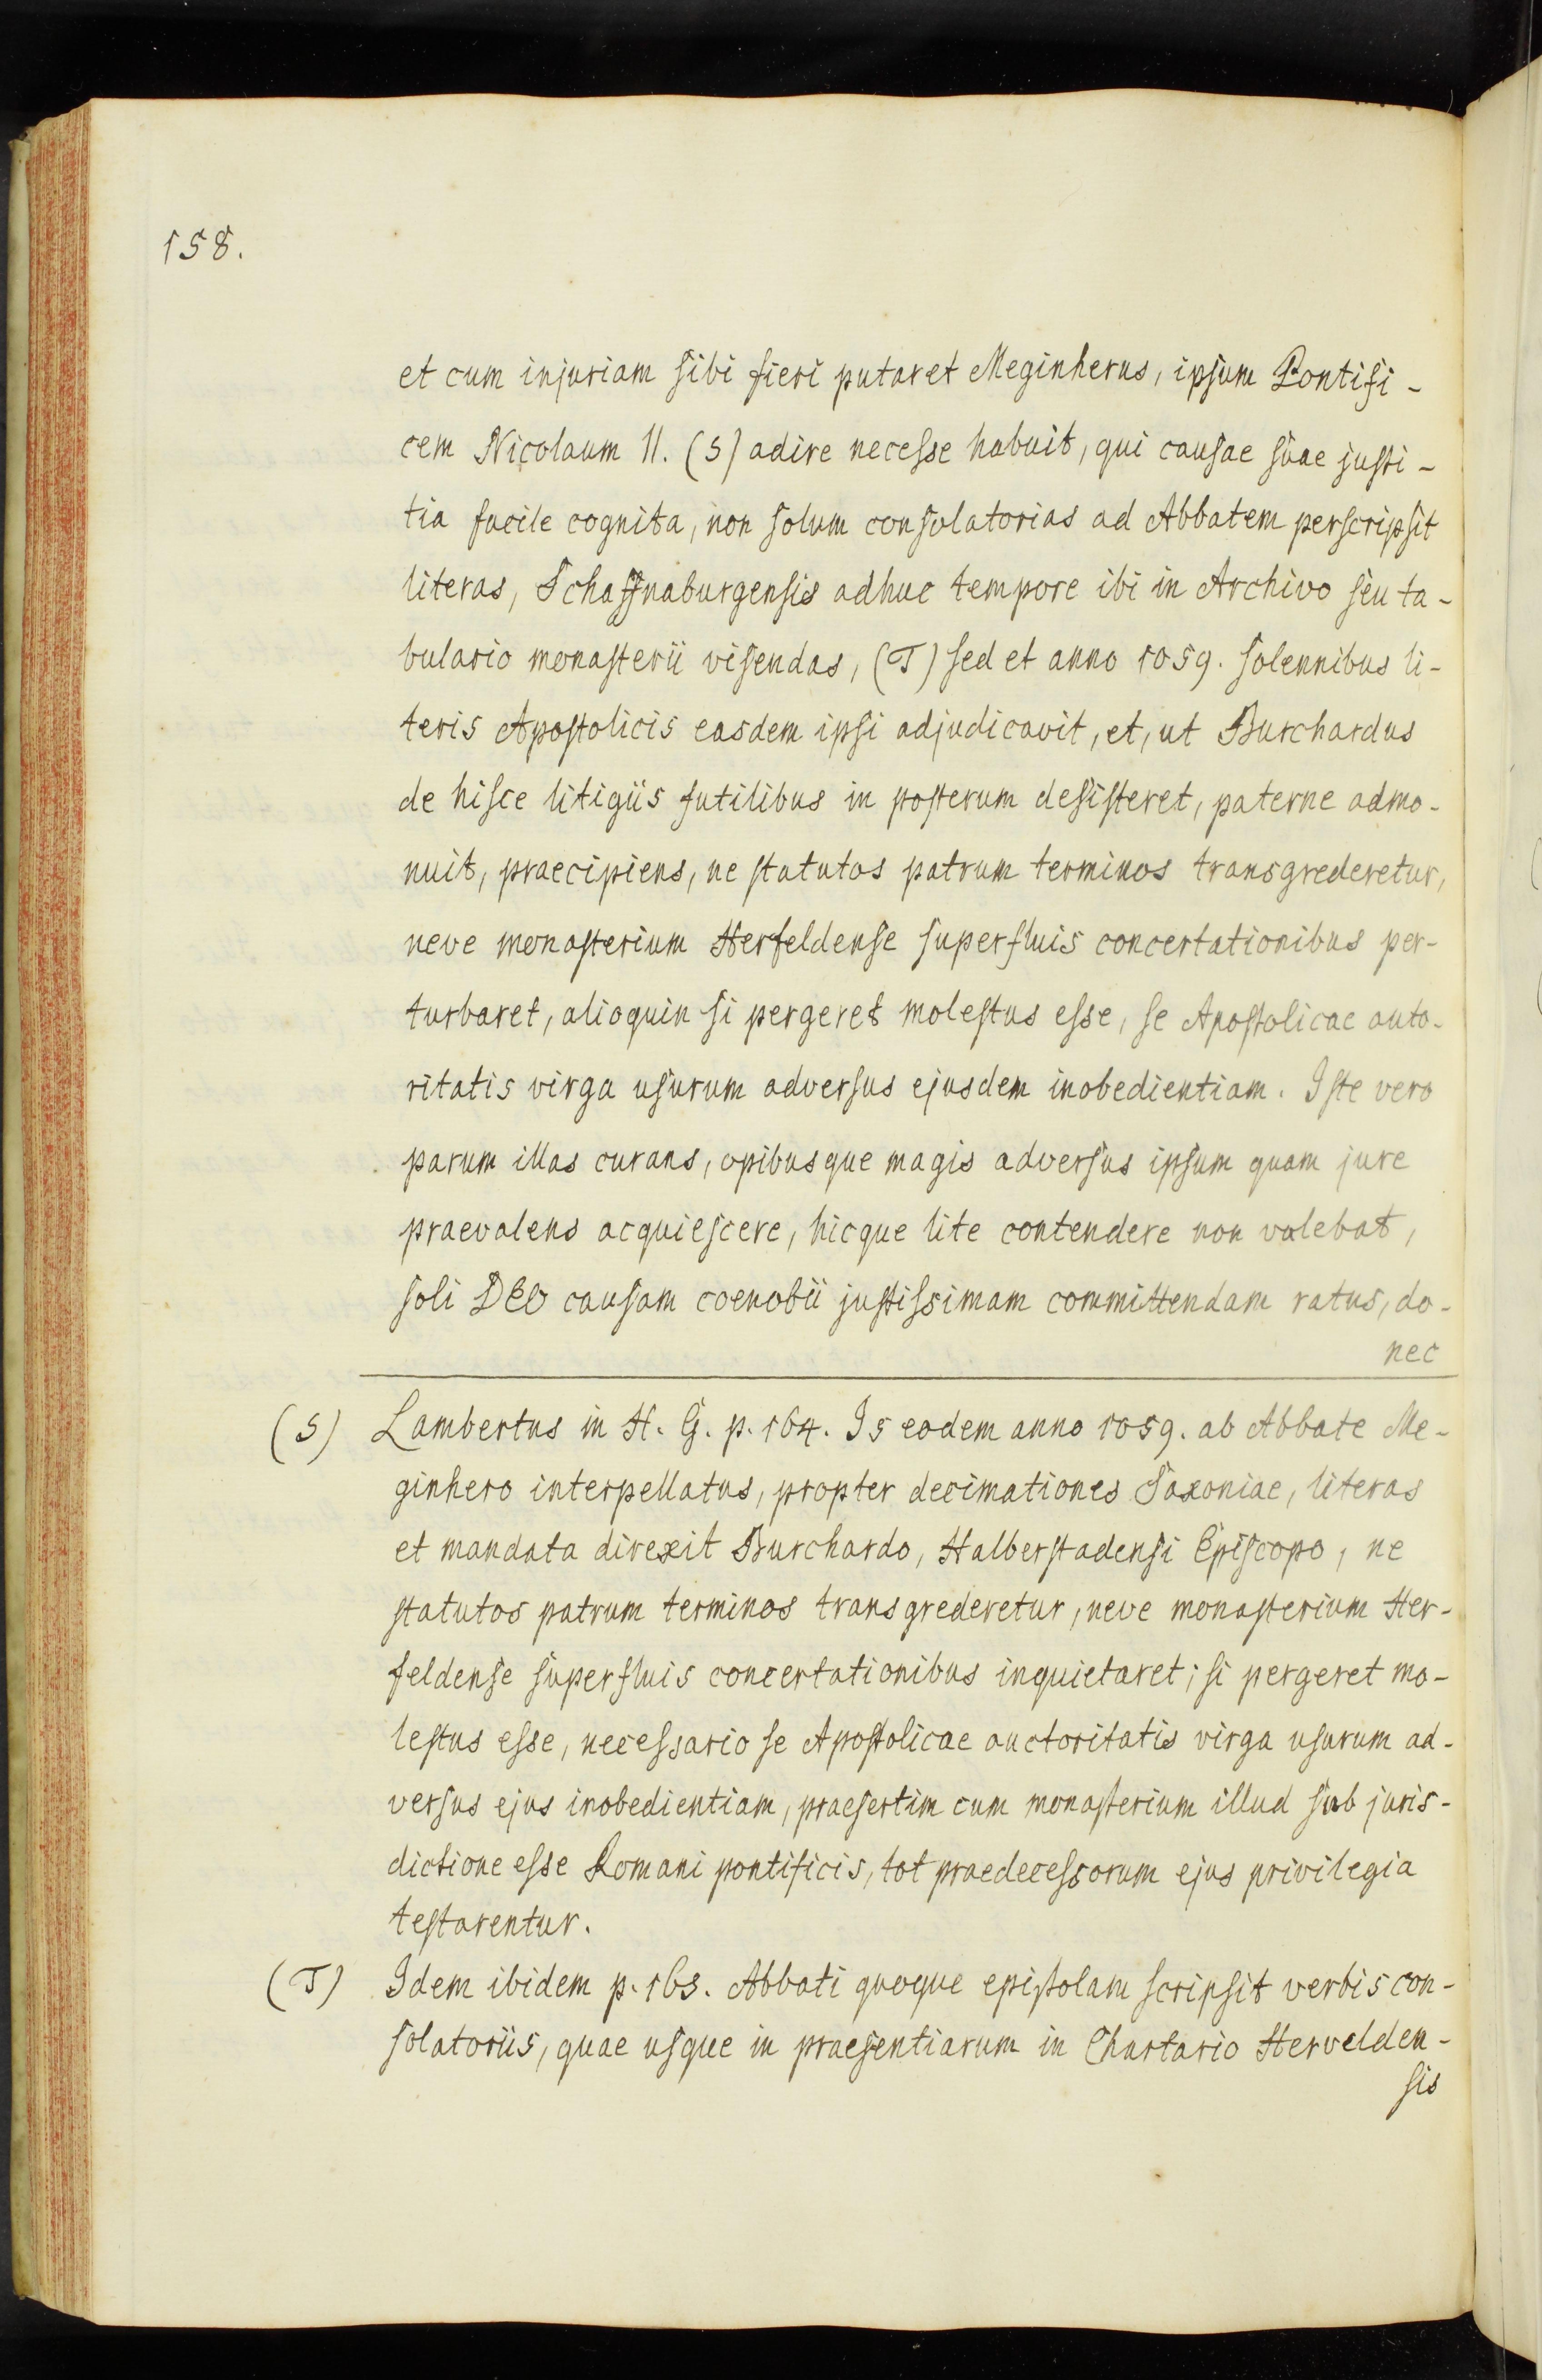 158.
et cum injuriam sibi fieri putaret Meginherus, ipsum Pontifi-
cem Nicolaum II. (S) adire necesse habuit, qui causae suae justi-
tia facile cognita, non solum consolatorias ad Abbatem perscripsit
literas, Schaffnaburgensis adhuc tempore ibi in Archivo seu ta-
bulario monasterii visendas, (T) sed et anno 1059. solennibus li-
teris Apostolicis easdem ipsi adjudicavit, et, ut Burchardus
de hisce litigiis futilibus in posterum desisteret, paterne admo-
nuit, praecipiens, ne statutos patrum terminos transgrederetur,
neve monasterium Herfeldense superfluis concertationibus per-
turbaret, alioquin si pergeret molestus esse, se Apostolicae auto-
ritatis virga usurum adversus ejusdem inobedientiam. Iste vero
parum illas curans, opibusque magis adversus ipsum quam jure
praevalens acquiescere, hicque lite contendere non valebat,
soli DEO causam coenobii justissimam committendam ratus, do-
nec
(S) Lambertus in H. G. p. 164. Is eodem anno 1059. ab Abbate Me-
ginhero interpellatus, propter decimationes Saxoniae, literas
et mandata direxit Burchardo, Halberstadensi Episcopo, ne
statutos patrum terminos transgrederetur, neve monasterium Her-
feldense superfluis concertationibus inquietaret; si pergeret mo-
lestus esse, necessario se Apostolicae auctoritatis virga usurum ad-
versus ejus inobedientiam, praesertim cum monasterium illud sub juris-
dictione esse Romani pontificis, tot praedecessorum ejus privilegia
testarentur.
(T) Idem ibidem p. 163. Abbati quoque epistolam scripsit verbis con-
solatoriis, quae usque in praesentiarum in Chartario Hervelden-
sis